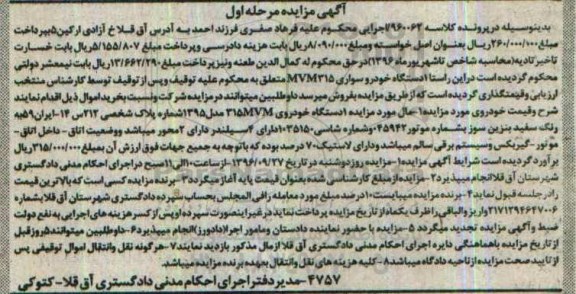 آگهی مزایده مرحله اول
بدینوسیله در پرونده کلاسه ۹۶۰۰۶۲/اجرایی محکوم علیه فرهاد صفری فرزند احمد به آدرس آق قلا خ آزادی ارکین ۵ بپرداخت
مبلغ ۲۶۰/۰۰۰/۱۰۰ ریال بعنوان اصل خواسته و مبلغ ۸/۰۹۰/۰۰۰ ریال بابت هزینه دادرسی و پرداخت مبلغ ۵/۱۵۵/۸۰۷ ریال بابت خسارت
تاخیر تادیه (محاسبه شاخص تا شهریور ماه ۱۳۹۶) در حق محکوم له کمال الدین طعنه و نیز پرداخت مبلغ ۱۳/۶۶۲/۲۹۰ ریال بابت نیمعشر دولتی
محکوم گردیده است در این راستا ۱ دستگاه خودرو سواری MVM۳۱۵ متعلق به محکوم علیه توقیف و پس از توقیف توسط کارشناس منتخب
ارزیابی و قیمتگذاری گردیده است که از طریق مزایده بفروش میرسد داوطلبین میتوانند در مزایده شرکت و نسبت بخرید اموال ذیل اقدام نمایند
شرح وقیمت خودروی مورد مزایده ۱-مال مورد مزایده ۱ دستگاه خودروی MVM۳۱۵ مدل ۱۳۹۵ شماره پلاک شخصی ۲۱۲س۱۴-ایران ۵۹ به
رنگ سفید بنزین سوز بشماره موتور ۴۵۹۴۲ و شماره شاسی ۱۰۳۵۱۵۰ دارای ۴ سیلندر دارای ۲ محور میباشد ووضعیت اتاق - داخل اتاق-
موتور-گیربکس وسیستم برقی سالم میباشد ودارای لاستیک ۷۰ درصد بوده که باتوجه به جمیع جهات فوق ارزش آن بمبلغ ۳۱۵/۰۰۰/۰۰۰ ریال
برآورد گردیده است شرایط آگهی مزایده ۱-مزایده روز دوشنبه در تاریخ ۱۳۹۶/۰۹/۲۷ از ساعت ۱۰ الی ۱۱ صبح دراجرای احکام مدنی دادگستری
شهرستان آق قلا انجام میپذیرد ۲-مزایده از مبلغ کارشناسی شده بعنوان قیمت پایه آغاز میگردد ۳-برنده مزایده کسی است که بالاترین قیمت
را در جلسه قبول نماید ۴-برنده مزایده میبایست ۱۰درصد مبلغ مورد معامله رافی المجلس بحساب سپرده دادگستری شهرستان آق قلا بشماره
۲۱۷۱۲۹۴۶۴۷۰۰۶ واریز والباقی راظرف یکماه ازتاریخ مزایده پرداخت نماید درغیراینصورت سپرده اوپس از کسر هزینه های اجرایی به نفع دولت
ضبط وآگهی مزایده تجدید میگردد ۵-مزایده با حضور نماینده دادستان ومامور اجرا (دادورز) انجام میپذیرد ۶-داوطلبین میتوانند ۵روز قبل
از تاریخ مزایده باهماهنگی دایره اجرای احکام مدنی دادگستری آق قلا ازمال مذکور بازدید نمایند ۷-هرگونه نقل وانتقال اموال توقیفی پس
ازتایید صحت مزایده ازناحیه دادگاه میباشد ۸-کلیه هزینه های نقل وانتقال بعهده برنده مزایده میباشد.
۴۷۵۷-مدیر دفتر اجرای احکام مدنی دادگستری آق قلا-کتوکی